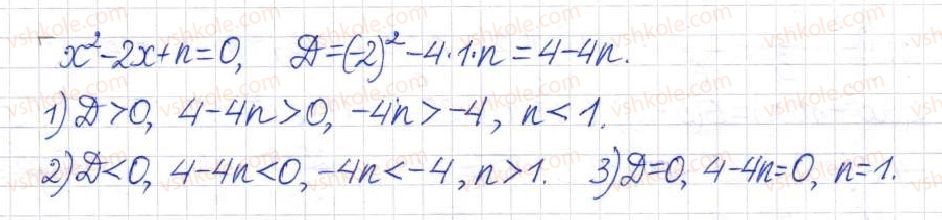 x²-2x+n=0, D=(-2)²-4·1·n=4-4n.
1) D>0, 4-4n>0, -4n>-4, n<1.
2) D<0, 4-4n<0, -4n<-4, n>1. 3) D=0, 4-4n=0, n=1.